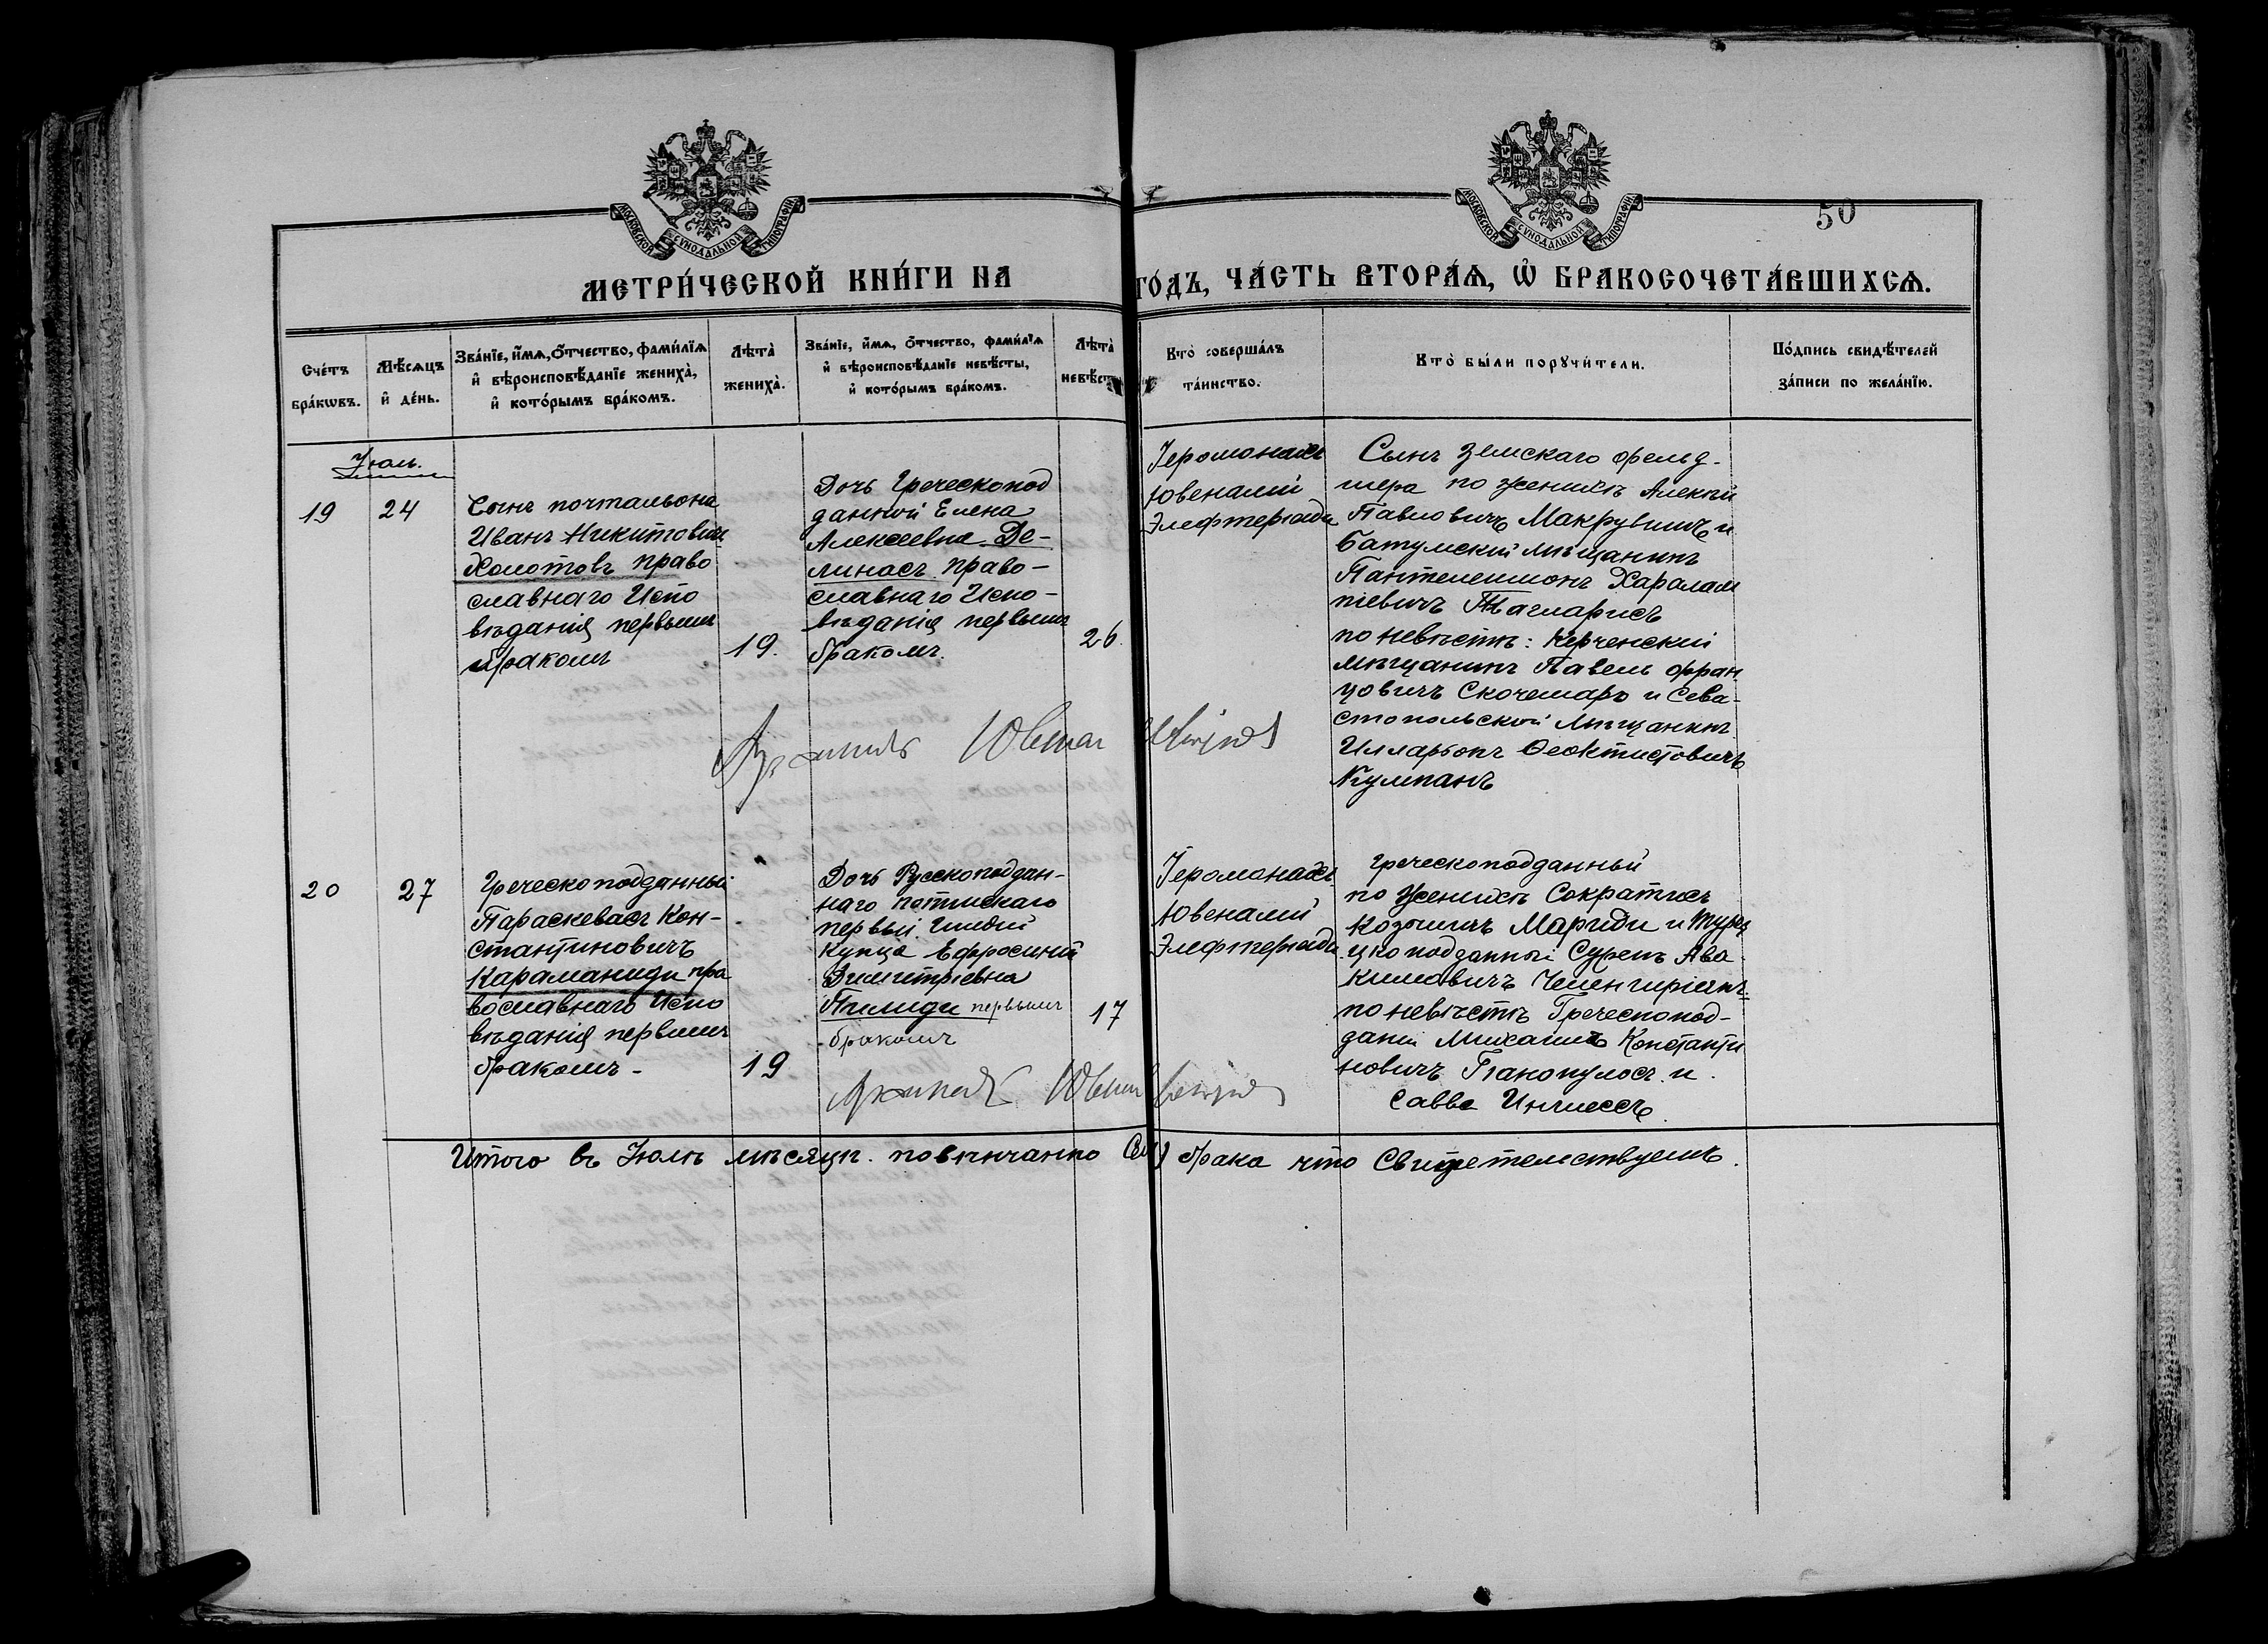 МОСКОВСКОЙ СѴНОДАЛЬНОЙ ТИПОГРАФІИ
МОСКОВСКОЙ СѴНОДАЛЬНОЙ ТИПОГРАФІИ
50
МЕТРИ́ЧЕСКОЙ КНИ́ГИ НА ГО́ДЪ, ЧА́СТЬ ВТОРА́Ѧ, Ѽ БРАКОСОЧЕТА́ВШИХСѦ.
Сче́тъ
бра́кѡвъ.
Мѣ́сѧцъ
и҆ де́нь.
Зва́нїе, и҆́мѧ, ѻ҆́тчество, фами́лїѧ
и҆ вѣроисповѣ́данїе жениха̀,
и҆ кото́рымъ бра́комъ.
Лѣта̀
жениха̀.
Зва́нїе, и҆́мѧ, ѻ҆́тчество, фами́лїѧ
и҆ вѣроисповѣ́данїе невѣ́сты,
и҆ кото́рымъ бра́комъ.
Лѣта̀
невѣ́сты
Кто̀ соверша́лъ
та́инство.
Кто̀ бы́ли порꙋчи́тели.
По́дпись свидѣ́телей
за́писи по жела́нїю.
Іюль.
19
24
Сынъ почтальона
Иванъ Никитовичъ
Холотовъ право
славнаго Испо
вѣданія первымъ
бракомъ
19.
Дочь Греческопод
данной Елена
Алексеевна Де-
линасъ право-
славнаго Испо-
вѣданія первымъ
бракомъ.
26.
Іеромонахъ
Ювеналій
Элефтеріади
Сынъ Земскаго фельд-
шера по женихѣ Алексѣй
Павловичъ Макрувичъ и
Батумскій мѣщанинъ
Пантелеимонъ Харалам
піевичъ Тагларисъ
по невѣстѣ: Керченскій
мѣщанинъ Павелъ Фран
цовичъ Скочемаро и Сева-
стопольской мѣщанинъ
Илларіонъ Феоктистовичъ
Кумпанъ
Іеромонахъ Ювеналій
20
27
Греческоподданный
Параскевасъ Кон-
стантиновичъ
Караманиди пра
вославнаго Испо
вѣданія первымъ
бракомъ-
19
Дочь Русскоподдан-
наго потійскаго
первый Гильдій
Купца Ефросиній
Димитріевна
первымъ
бракомъ
17
Іеромонахъ
Ювеналій
Элефтеріади
Греческоподданный
по Женихѣ Сократисъ
Козьмичъ Мариди и Турец
цкоподданный Суренъ Ава
кимовичъ Челенгиріянъ
по невѣстѣ Греческопод-
даный Михаилъ Константи
новичъ Панопулосъ и
Савва
Іеромонахъ Ювеналій
Итого въ Іюлѣ мѣсяцѣ повѣнчанно брака что Свидетельствуемъ.